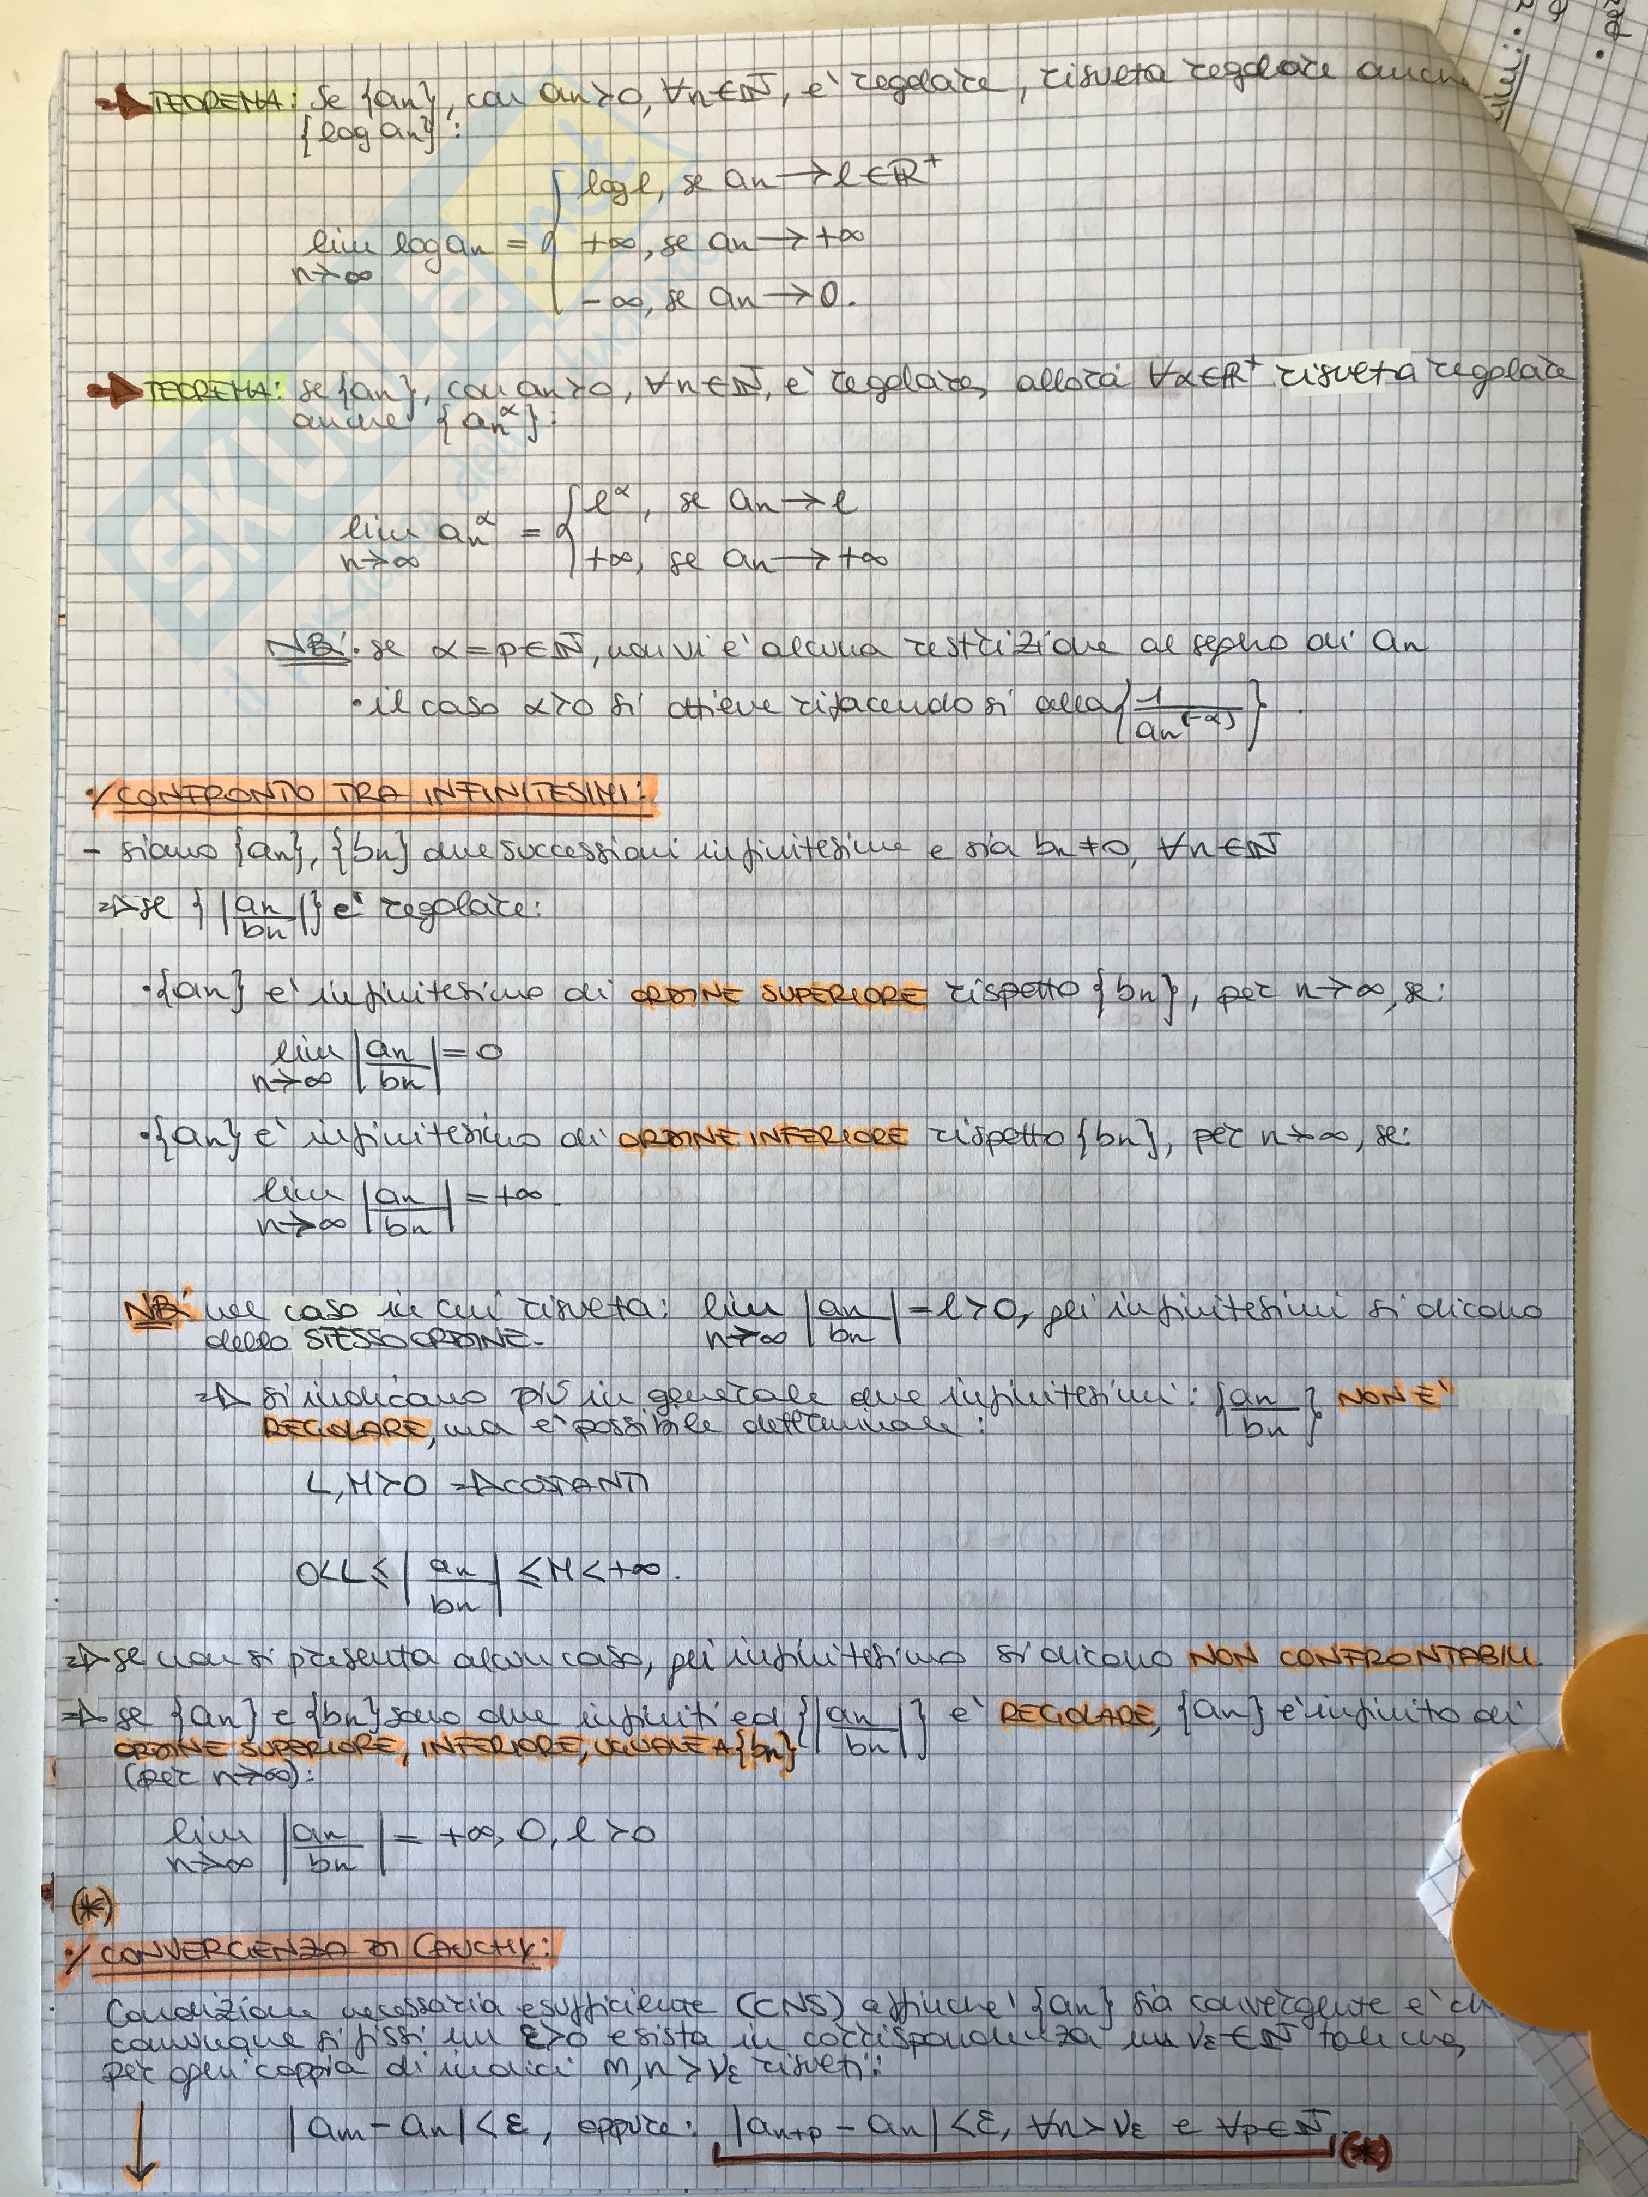 → TEOREMA: Se {an}, con an>0, ∀n∈ℕ, e' regolare, risulta regolare anche
{log an}:
lim n→∞ log an = { log l, se an → l∈ℝ⁺
+∞, se an → +∞
-∞, se an → 0.
→ TEOREMA: se {an}, con an>0, ∀n∈ℕ, e' regolare, allora ∀α∈ℝ⁺ risulta regolare
anche {an^α}:
lim n→∞ an^α = { l^α, se an → l
+∞, se an → +∞
NB: • se α=p∈ℕ, non vi e' alcuna restrizione al segno di an
• il caso α>0 si ottiene rifacendosi alla {1/an^(-α)}.
•/ CONFRONTO TRA INFINITESIMI:
- siano {an}, {bn} due successioni infinitesime e sia bn≠0, ∀n∈ℕ
⇒ se {|an/bn|} e' regolare:
• {an} e' infinitesimo di ORDINE SUPERIORE rispetto {bn}, per n→∞, se:
lim n→∞ |an/bn| = 0
• {an} e' infinitesimo di ORDINE INFERIORE rispetto {bn}, per n→∞, se:
lim n→∞ |an/bn| = +∞.
NB: nel caso in cui risulta: lim n→∞ |an/bn| = l>0, gli infinitesimi si dicono
dello STESSO ORDINE.
⇒ si indicano più in generale due infinitesimi: {an/bn} NON E'
REGOLARE, ma e' possibile determinare:
L, M>0 ⇒ COSTANTI
0<L≤|an/bn|≤M<+∞.
⇒ se non si presenta alcun caso, gli infinitesimo si dicono NON CONFRONTABILI.
⇒ se {an} e {bn} sono due infiniti ed {|an/bn|} e' REGOLARE, {an} e' infinito di
ORDINE SUPERIORE, INFERIORE, UGUALE A {bn}
(per n→∞):
lim n→∞ |an/bn| = +∞, 0, l>0
(*)
•/ CONVERGENZA DI CAUCHY:
Condizione necessaria e sufficiente (CNS) affinche' {an} sia convergente e'
comunque si fissi un ε>0 esista in corrispondenza un νε∈ℕ tale che,
per ogni coppia di indici m,n>νε risulti:
|am-an|<ε, oppure: |an+p-an|<ε, ∀n>νε e ∀p∈ℕ (*)